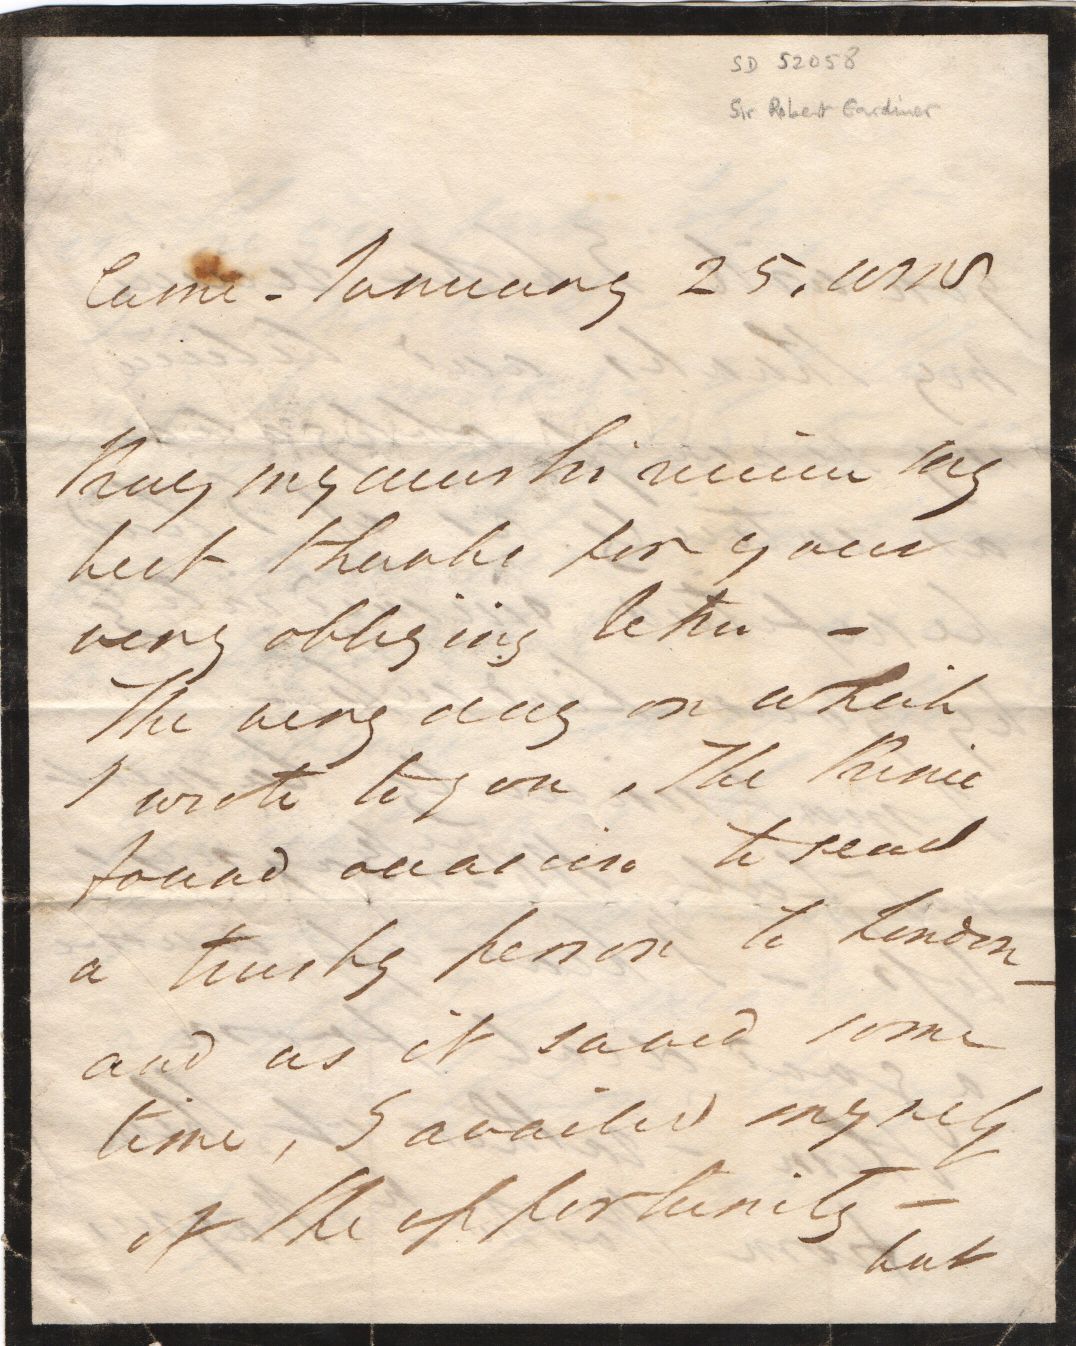 SD 52058
Sir Robert Gardiner
January 25.
Pray my receive my
best thanks for your
very obliging letter -
The very day on which
I wrote to you, The Prince
found occasion to send
a trusty person to London -
and as it saved some
time, I availed myself
of the opportunity -
but